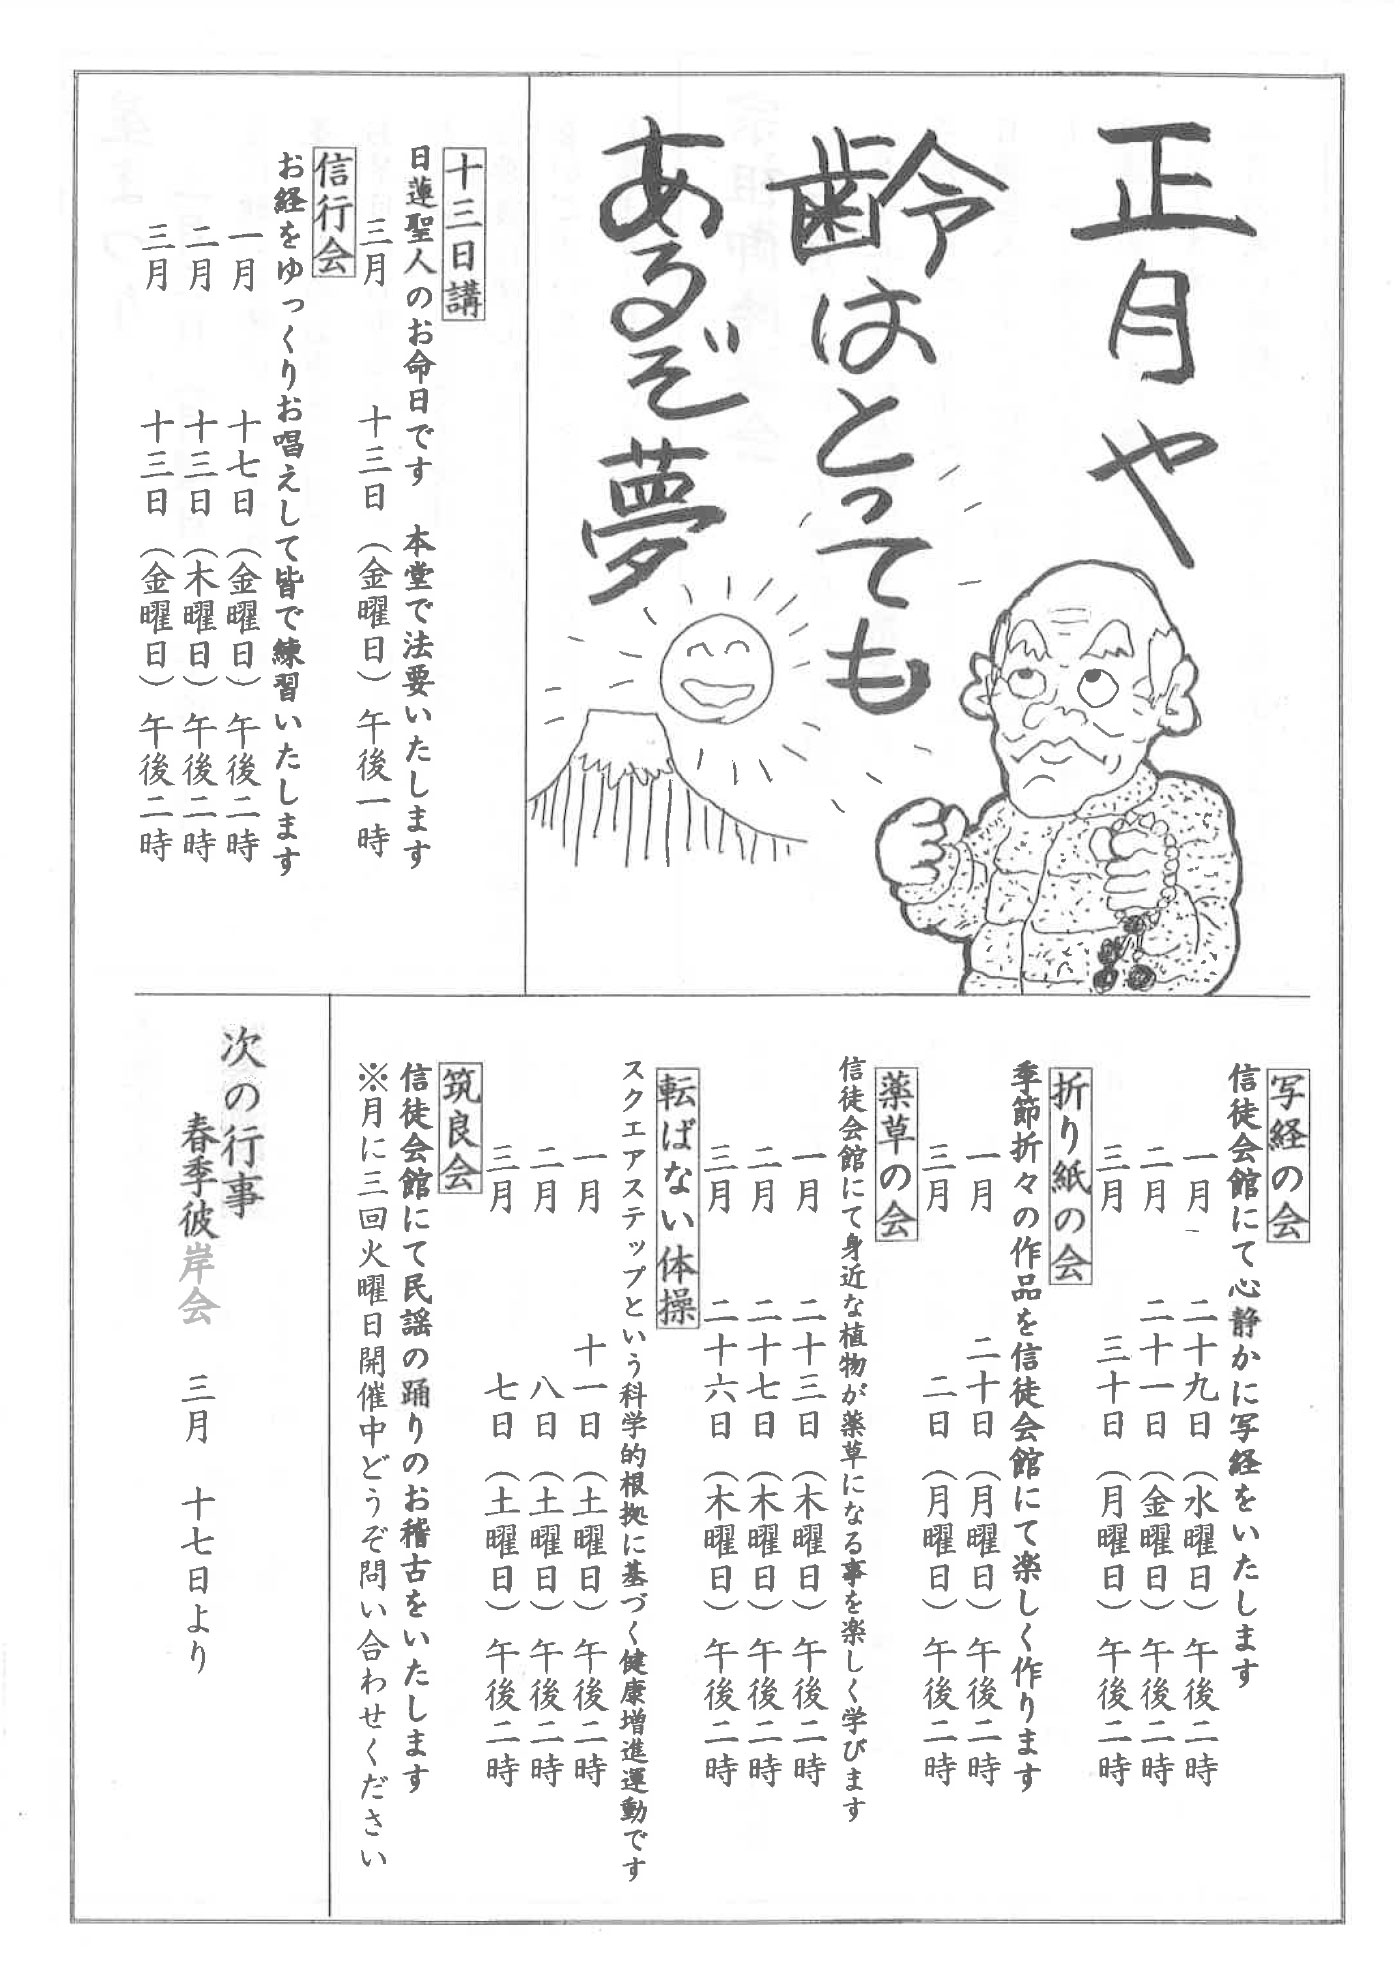 正月や
齢はとっても
あるぞ夢
十三日講
日蓮聖人のお命日です　本堂で法要いたします
三月　十三日（金曜日）午後一時
信行会
お経をゆっくりお唱えして皆で練習いたします
一月　十七日（金曜日）午後二時
二月　十三日（木曜日）午後二時
三月　十三日（金曜日）午後二時
写経の会
信徒会館にて心静かに写経をいたします
一月　二十九日（水曜日）午後二時
二月　二十一日（金曜日）午後二時
三月　三十日（月曜日）午後二時
折り紙の会
季節折々の作品を信徒会館にて楽しく作ります
一月　二十日（月曜日）午後二時
三月　二日（月曜日）午後二時
薬草の会
信徒会館にて身近な植物が薬草になる事を楽しく学びます
一月　二十三日（木曜日）午後二時
二月　二十七日（木曜日）午後二時
三月　二十六日（木曜日）午後二時
転ばない体操
スクエアステップという科学的根拠に基づく健康増進運動です
一月　十一日（土曜日）午後二時
二月　八日（土曜日）午後二時
三月　七日（土曜日）午後二時
筑良会
信徒会館にて民謡の踊りのお稽古をいたします
※月に三回火曜日開催中どうぞ問い合わせください
次の行事
春季彼岸会　三月　十七日より